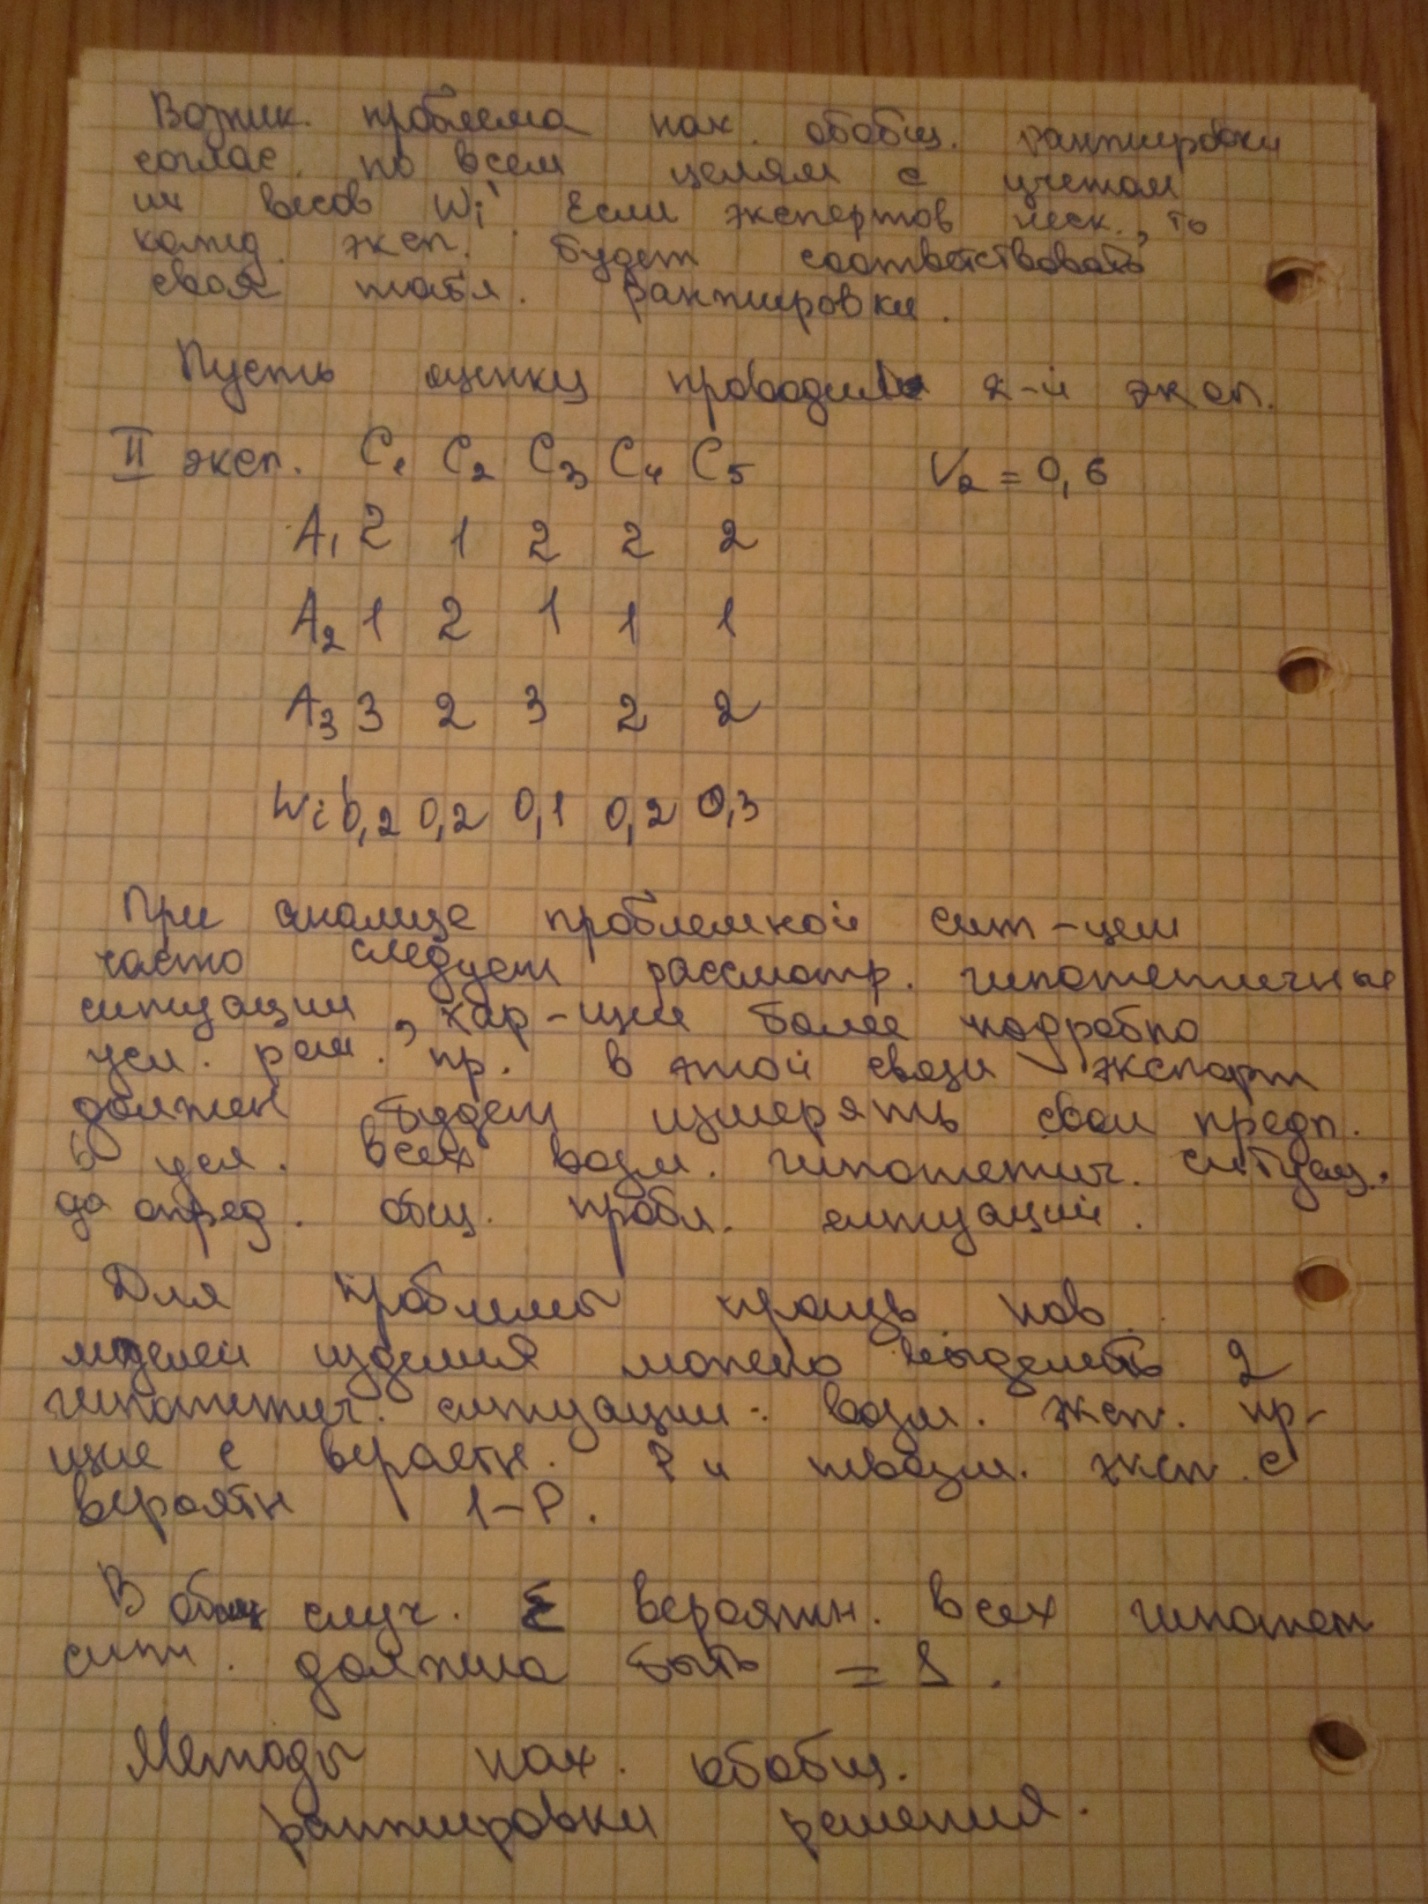 Возник. проблема нах. обобщ. ранжировки
соглас. по всем целям с учетом
их весов Wi. Если экспертов неск., то
кажд. эксп. будет соответствовать
своя табл. ранжировки.
Пусть оценку проводил 2-й эксп.
II эксп. C1 C2 C3 C4 C5 V2 = 0,6
A1 2 1 2 2 2
A2 1 2 1 1 1
A3 3 2 3 2 2
Wi 0,2 0,2 0,1 0,2 0,3
При анализе проблемной сит-ции
часто следует рассмотр. гипотетичные
ситуации, хар-щие более подробно
усл. реш. пр. В этой связи экспарт
должен будет измерять свои предп.
в усл. всех возм. гипотетич. ситуац.
до опред. общ. пробл. ситуаций.
Для проблемы произв. нов.
моделей изделия можно выделить 2
гипотетич. ситуации: возм. эксп. пр-
ции с вероятн. P и невозм. эксп. с
вероятн 1-P.
В общ случ. Σ вероятн. всех гипотет
ситу. должна быть = 1.
Методы нах. обобщ.
ранжировки решения.